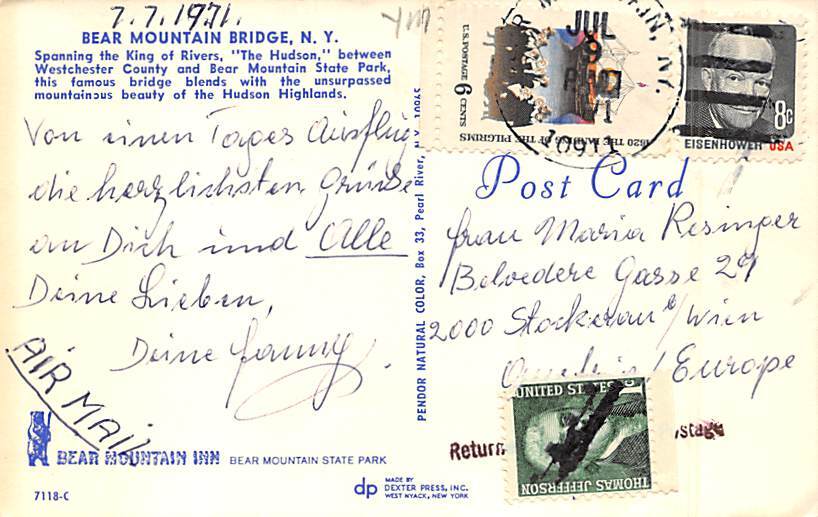 7.7.1971.
BEAR MOUNTAIN BRIDGE, N. Y.
Spanning the King of Rivers, "The Hudson," between
Westchester County and Bear Mountain State Park,
this famous bridge blends with the unsurpassed
mountainous beauty of the Hudson Highlands.
Von einen Tages Ausflug
die herzlichsten Grüsse
an Dich und Alle
Deine Lieben,
Deine Fanny.
AIR MAIL
BEAR MOUNTAIN INN BEAR MOUNTAIN STATE PARK
7118-C
dp MADE BY
DEXTER PRESS, INC.
WEST NYACK, NEW YORK
PENDOR NATURAL COLOR, Box 33, Pearl River, N.Y. 10965
U.S. POSTAGE 6 CENTS
1620 THE LANDING OF THE PILGRIMS
JUL
9
PM
N.Y.
10911
8c
EISENHOWER USA
Post Card
Frau Maria Resinger
Belvedere Gasse 29
2000 Stockerau b/Wien
/Europe
UNITED STATES 1c
THOMAS JEFFERSON
Return